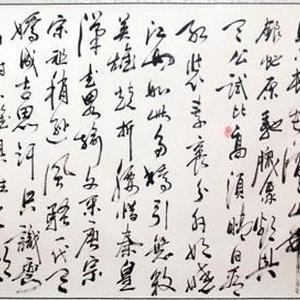 滔滔山舞
银蛇原驰腊象欲与
天公试比高须晴日看
红装素裹分外妖娆
江山如此多娇引无数
英雄竞折腰惜秦皇
汉武略输文采唐宗
宋祖稍逊风骚一代天
骄成吉思汗只识弯
射大雕俱往矣